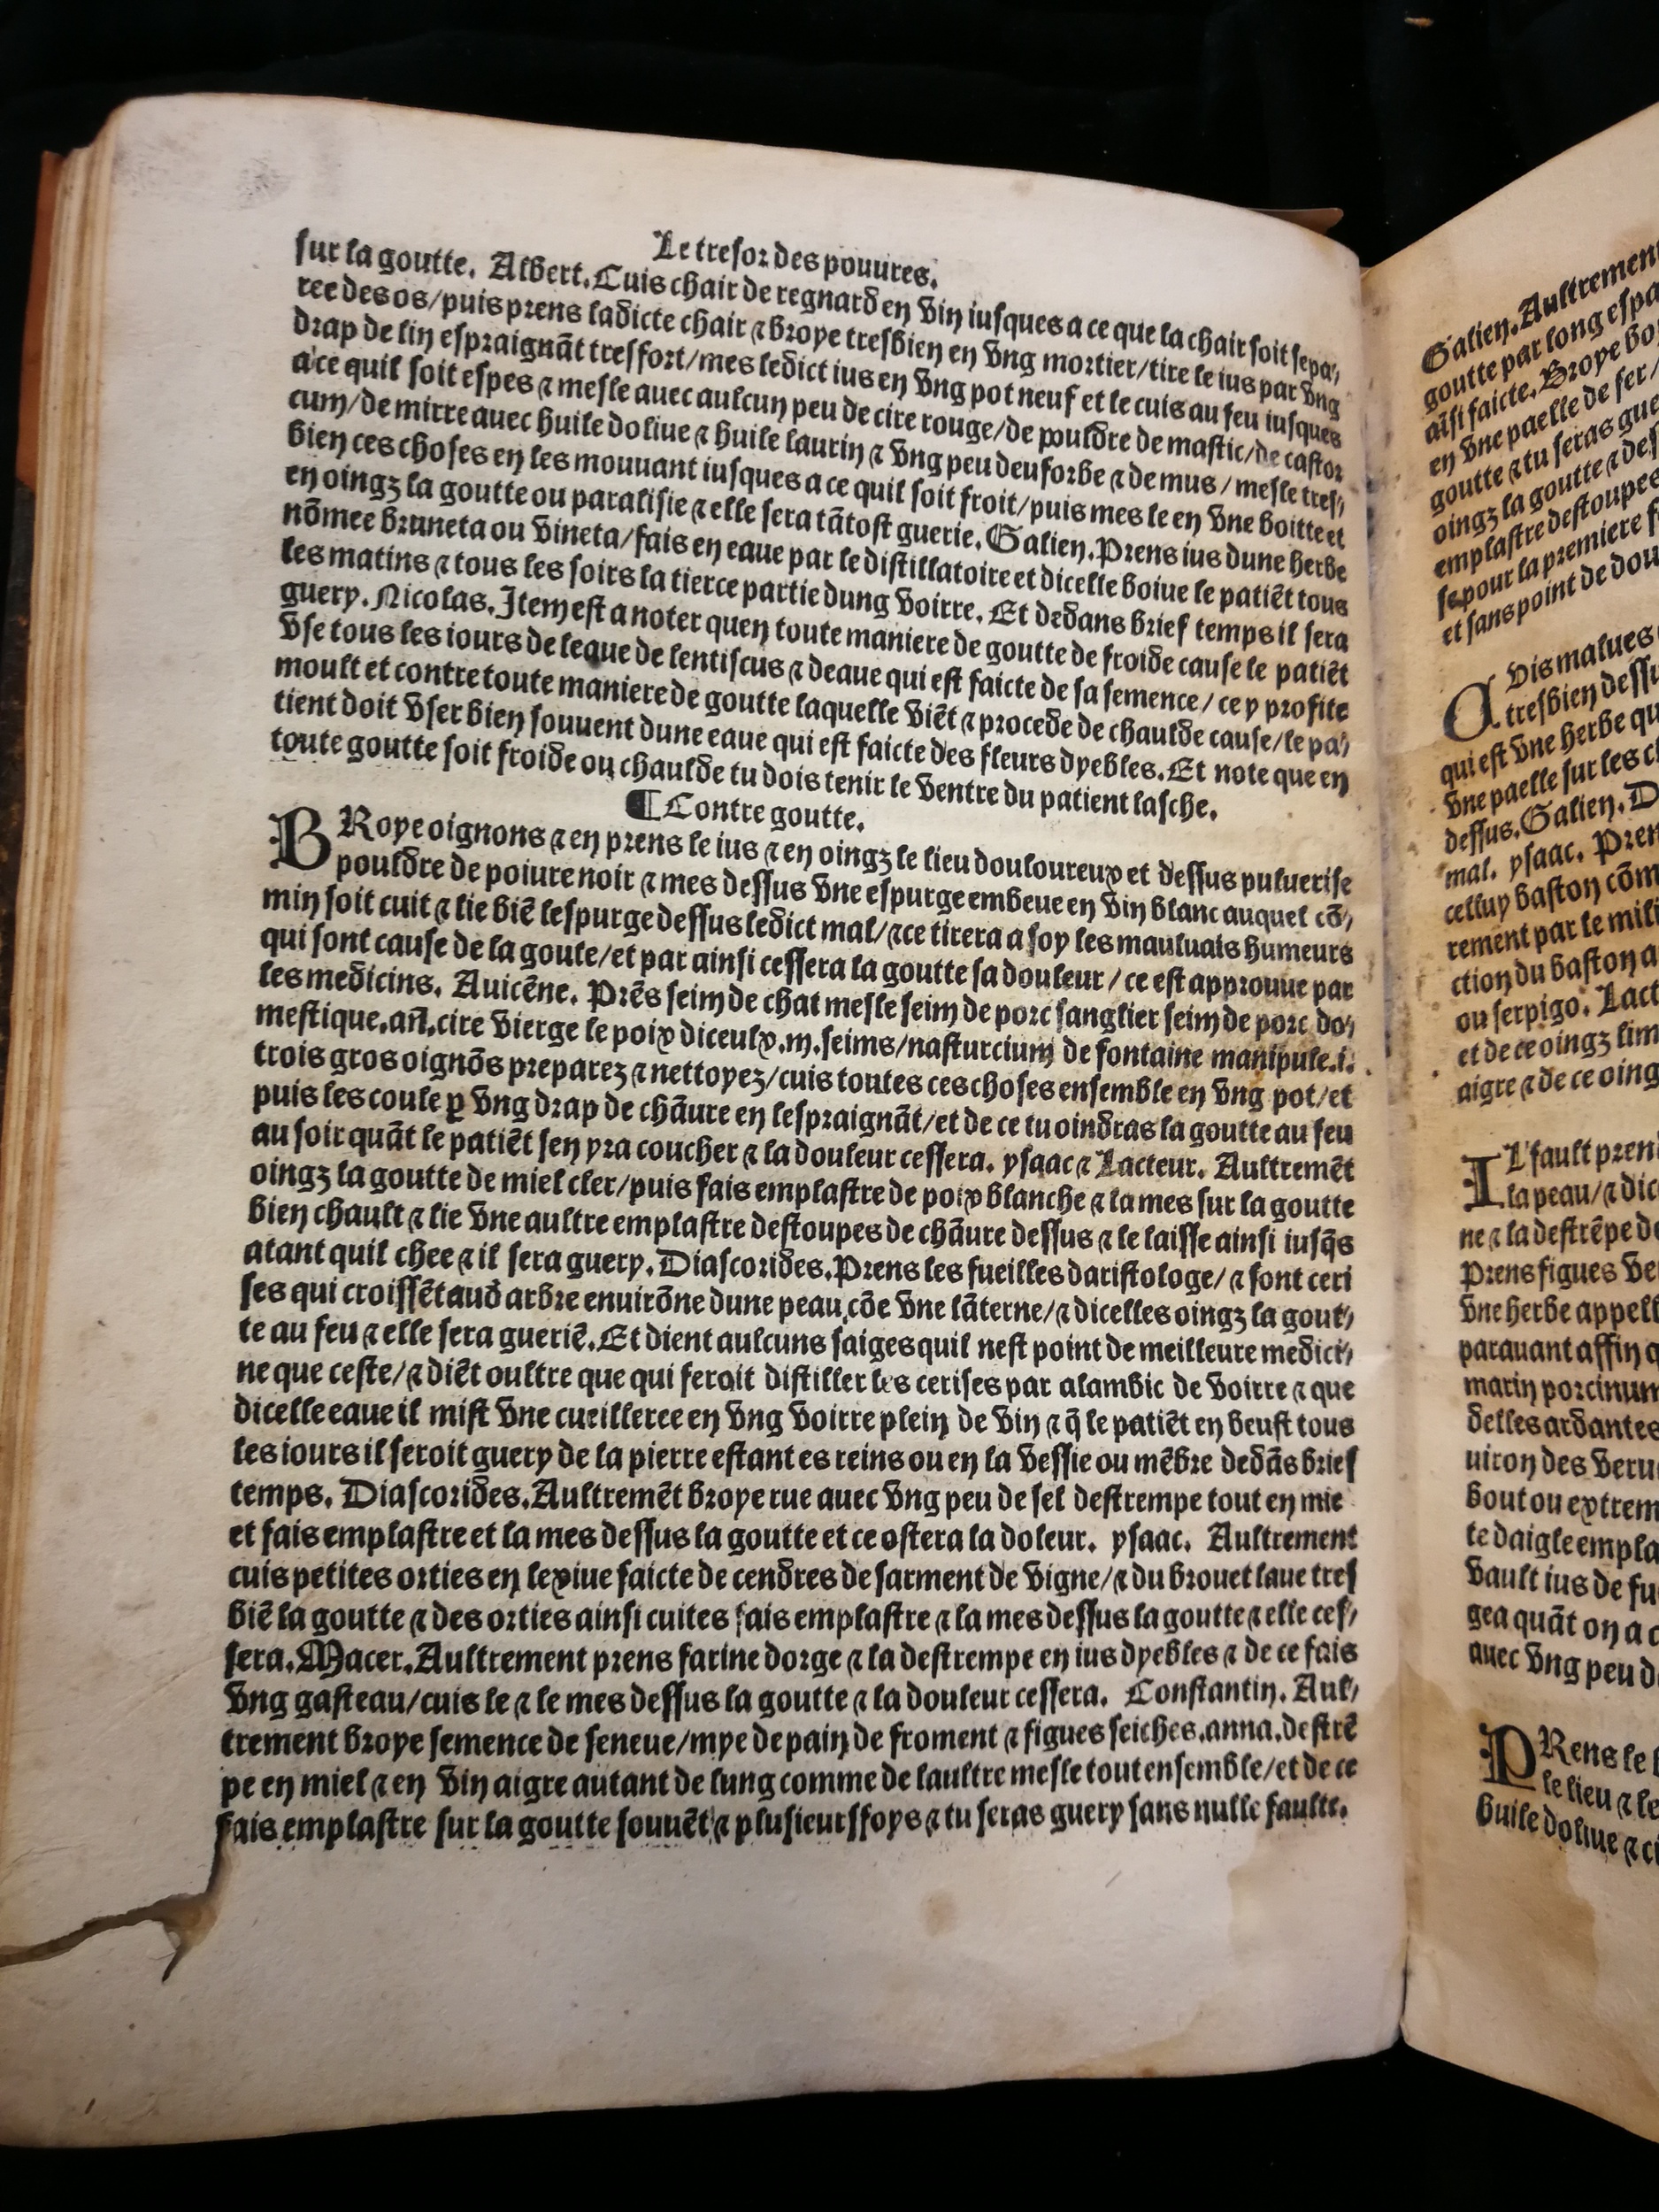 Le tresor des pouures.
sur la goutte. Albert. Cuis chair de regnard en vin iusques a ce que la chair soit sepa/
ree des os/puis prens ladicte chair ⁊ broye tresbien en vng mortier/tire le ius par vng
drap de lin espraignãt tresfort/mes ledict ius en vng pot neuf et le cuis au feu iusques
a ce quil soit espes ⁊ mesle auec aulcun peu de cire rouge/de pouldre de mastic/de castor
cum/de mirre auec huile doliue ⁊ huile laurin ⁊ vng peu deuforbe ⁊ de mus/mesle tres/
bien ces choses en les mouuant iusques a ce quil soit froit/puis mes le en vne boitte et
en oingz la goutte ou paralisie ⁊ elle sera tãtost guerie. Galien. Prens ius dune herbe
nõmee bruneta ou vineta/fais en eaue par le distillatoire et dicelle boiue le patiẽt tous
les matins ⁊ tous les soirs la tierce partie dung voirre. Et dedans brief temps il sera
guery. Nicolas. Item est a noter quen toute maniere de goutte de froide cause le patiẽt
vse tous les iours de leaue de lentiscus ⁊ deaue qui est faicte de sa semence/ce y profite
moult et contre toute maniere de goutte laquelle viẽt ⁊ procede de chaulde cause/le pa/
tient doit vser bien souuent dune eaue qui est faicte des fleurs dyebles. Et note que en
toute goutte soit froide ou chaulde tu dois tenir le ventre du patient lasche.
¶ Contre goutte.
BRoye oignons ⁊ en prens le ius ⁊ en oingz le lieu douloureux et dessus puluerise
pouldre de poiure noir ⁊ mes dessus vne espurge embeue en vin blanc auquel cõ/
min soit cuit ⁊ lie biẽ lespurge dessus ledict mal/⁊ ce tirera a soy les mauluais humeurs
qui sont cause de la goute/et par ainsi cessera la goutte sa douleur/ce est approuue par
les medicins. Auicẽne. Prẽs seim de chat mesle seim de porc sanglier seim de porc do/
mestique.añ.cire vierge le poix diceulx.m.seims/nasturcium de fontaine manipule.i.
trois gros oignõs preparez ⁊ nettoyez/cuis toutes ces choses ensemble en vng pot/et
puis les coule ꝑ vng drap de chãure en lespraignãt/et de ce tu oindras la goutte au feu
au soir quãt le patiẽt sen yra coucher ⁊ la douleur cessera. ysaac ⁊ Lacteur. Aultremẽt
oingz la goutte de miel cler/puis fais emplastre de poix blanche ⁊ la mes sur la goutte
bien chault ⁊ lie vne aultre emplastre destoupes de chãure dessus ⁊ le laisse ainsi iusq̃s
atant quil chee ⁊ il sera guery. Diascorides. Prens les fueilles daristologe/⁊ sont ceri
ses qui croissẽt aud arbre enuirõne dune peau cõe vne lãterne/⁊ dicelles oingz la gout/
te au feu ⁊ elle sera gueriẽ. Et dient aulcuns saiges quil nest point de meilleure medici/
ne que ceste/⁊ diẽt oultre que qui feroit distiller les cerises par alambic de voirre ⁊ que
dicelle eaue il mist vne cueilleree en vng voirre plein de vin ⁊ q̃ le patiẽt en beust tous
les iours il seroit guery de la pierre estant es reins ou en la vessie ou mẽbre dedãs brief
temps. Diascorides. Aultremẽt broye rue auec vng peu de sel destrempe tout en mie
et fais emplastre et la mes dessus la goutte et ce ostera la doleur. ysaac. Aultrement
cuis petites orties en lexiue faicte de cendres de sarment de vigne/⁊ du brouet laue tres
biẽ la goutte ⁊ des orties ainsi cuites fais emplastre ⁊ la mes dessus la goutte ⁊ elle ces/
sera. Macer. Aultrement prens farine dorge ⁊ la destrempe en ius dyebles ⁊ de ce fais
vng gasteau/cuis le ⁊ le mes dessus la goutte ⁊ la douleur cessera. Constantin. Aul/
trement broye semence de seneue/mye de pain de froment ⁊ figues seiches.anna.destrẽ
pe en miel ⁊ en vin aigre autant de lung comme de laultre mesle tout ensemble/et de ce
fais emplastre sur la goutte souuẽt ⁊ plusieurs foys ⁊ tu seras guery sans nulle faulte.
Galien. Aultrement
goutte par long espa
aĩsi faicte. Broye
en vne paelle de fer/
goutte ⁊ tu seras gue
oingz la goutte ⁊ des
emplastre destoupes
se pour la premiere f
et sans point de dou
Vis malues
tresbien dessu
qui est vne herbe qu
vne paelle sur les
dessus. Galien. D
mal. ysaac. Pren
celluy baston cõm
rement par le mili
ction du baston a
ou serpigo. Lact
et de ce oingz lim
aigre ⁊ de ce oing
IL fault pren
la peau/⁊ dic
ne ⁊ la destrẽpe de
Prens figues ve
vne herbe appell
parauant affin q
marin porcinum
delles ardantes
uiron des veru
bout ou extrem
te daigle empla
vault ius de fu
gea quãt on a
auec vng peu d
PRens le
le lieu ⁊ le
huile doliue ⁊ ci